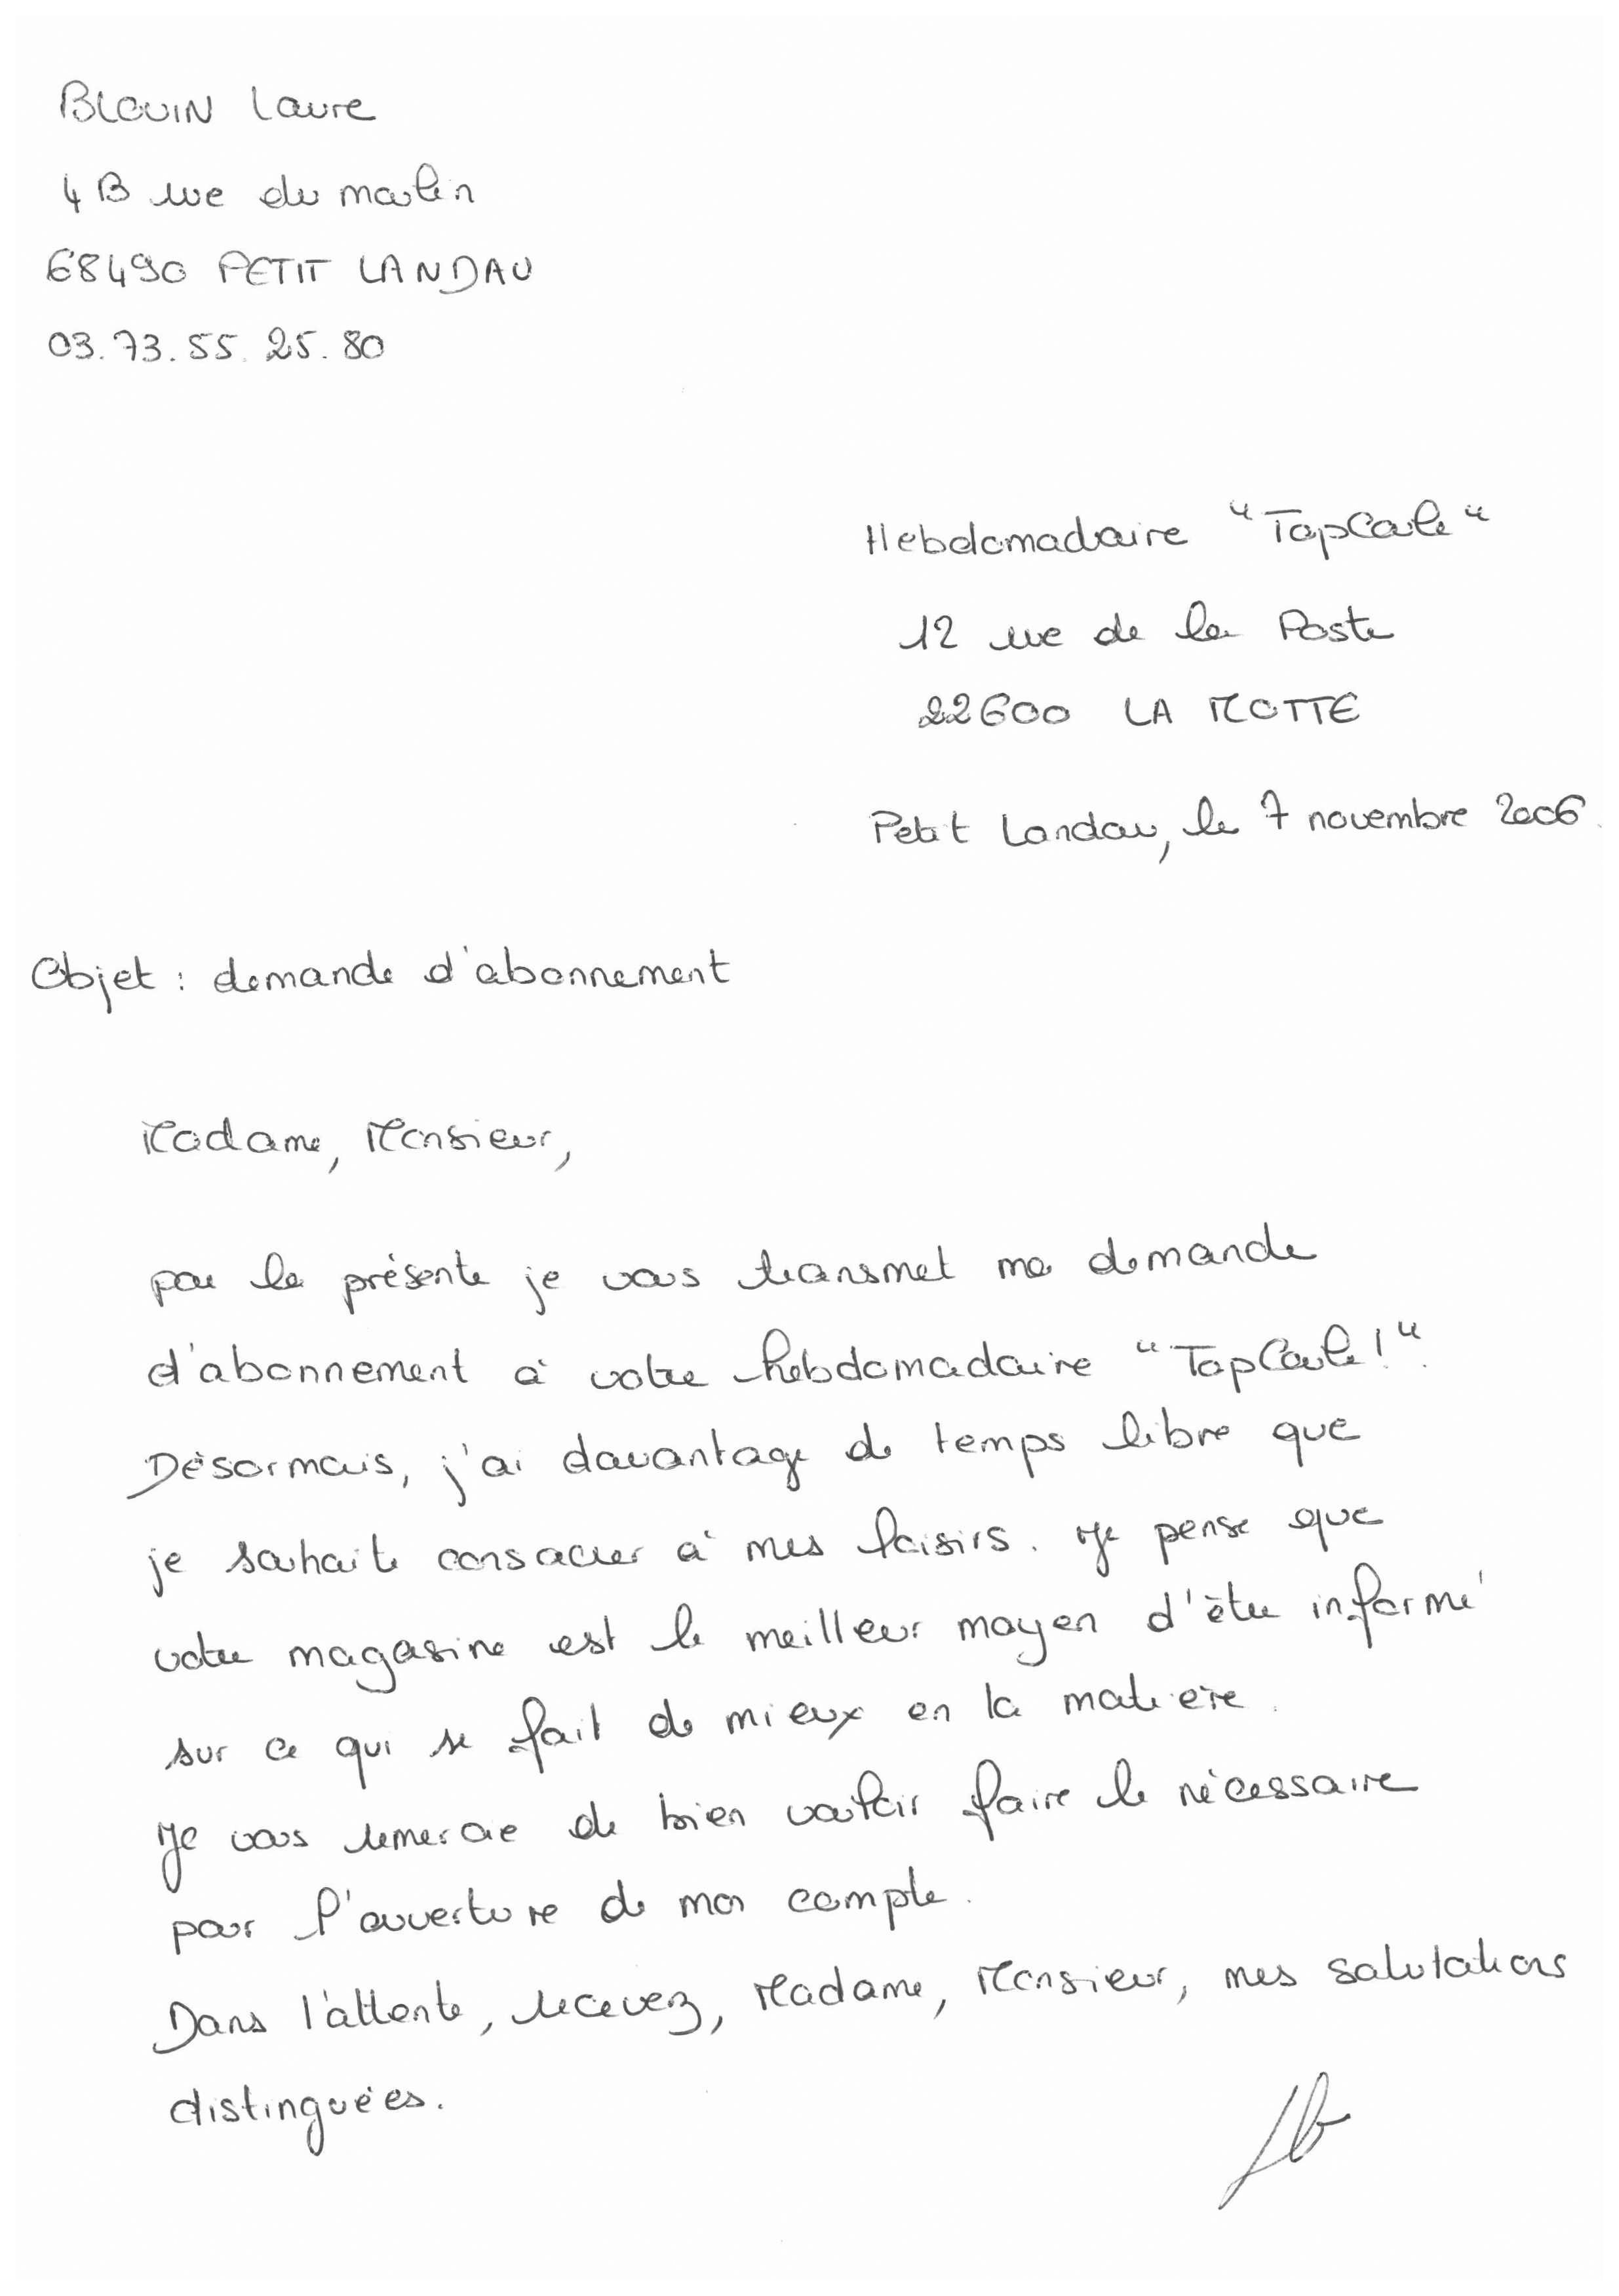 BLOUIN Laure
4 B rue du martin
68490 PETIT LANDAU
03.73.55.25.80
Hebdomadaire "TopCarte"
12 rue de la Poste
22600 LA MOTTE
Petit Landau, le 7 novembre 2006.
Objet : demande d'abonnement
Madame, Monsieur,
par la présente je vous transmet ma demande
d'abonnement à votre hebdomadaire "TopCarte!".
Désormais, j'ai davantage de temps libre que
je souhaite consacrer à mes loisirs. Je pense que
votre magasine est le meilleur moyen d'être informé
sur ce qui se fait de mieux en la matière.
Je vous remercie de bien vouloir faire le nécessaire
pour l'ouverture de mon compte.
Dans l'attente, recevez, Madame, Monsieur, mes salutations
distinguées.